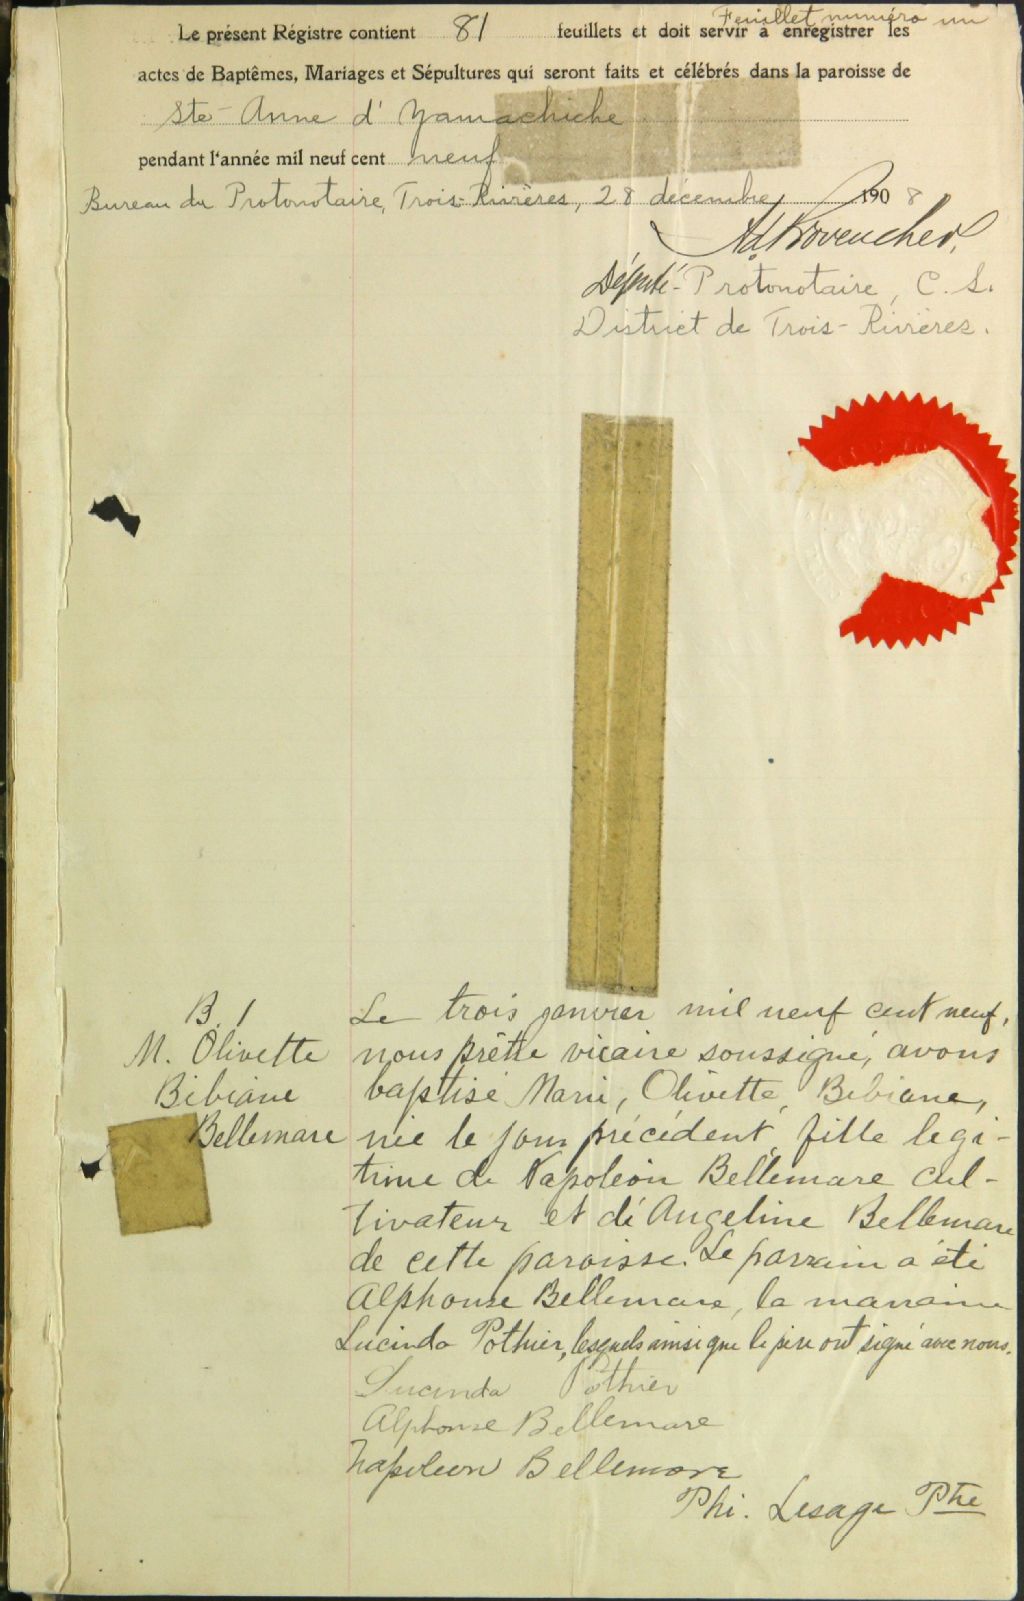 Feuillet numéro un
Le présent Régistre contient 81 feuillets et doit servir à enregistrer les
actes de Baptêmes, Mariages et Sépultures qui seront faits et célébrés dans la paroisse de
Ste-Anne d'Yamachiche
pendant l'année mil neuf cent neuf
Bureau du Protonotaire, Trois-Rivières, 28 décembre 1908
Ad. Provencher,
Député-Protonotaire, C. S.
District de Trois-Rivières.
B. 1
M. Olivette
Bibiane
Bellemare
Le trois janvier mil neuf cent neuf,
nous prêtre vicaire soussigné, avons
baptisé Marie, Olivette, Bibiane,
née le jour précédent, fille legi-
time de Napoléon Bellemare cul-
tivateur et de Angeline Bellemare
de cette paroisse. Le parrain a été
Alphonse Bellemare, la marraine
Lucinda Pothier, lesquels ainsi que le père ont signé avec nous.
Lucinda Pothier
Alphonse Bellemare
Napoleon Bellemare
Phi. Lesage Ptre